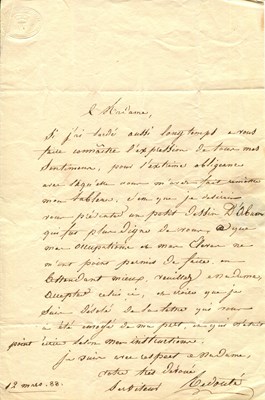 Madame,
Si j'ai tardé aussi longtemps a vous
faire connaître l'expression de tous mes
Sentimens, pour l'extrême obligeance
avec laquelle vous m'avez fait
mon tableau, c'est que je désirais
vous présenter un petit dessin
qui fut plus digne de vous, et que
mes occupations et mes Eleves ne
m'ont point permis de faire, en
attendant mieux, veuillez Madame,
accepter celui ci, et croire que je
suis désolé de la lettre que vous
a été envoyé de ma part, et qui n'etait
point selon mes instructions.
Je suis avec respect, Madame,
votre très dévoué
Serviteur Redouté
12 mars